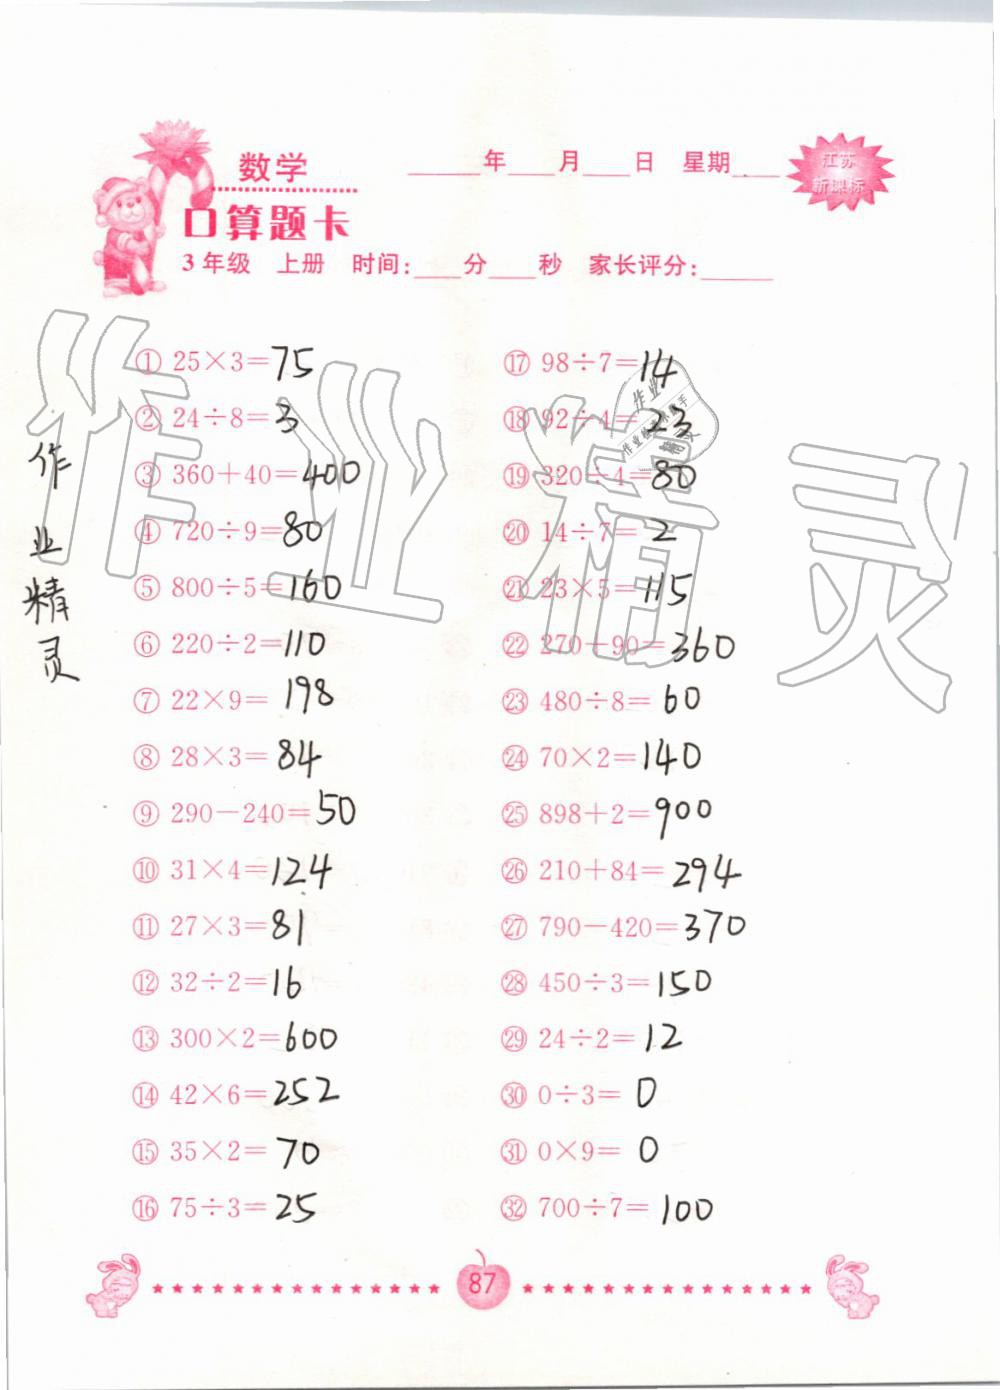 数学
____年___月___日 星期___
江苏
新课标
口算题卡
3年级 上册 时间:___分___秒 家长评分:_____
① 25×3=75
② 24÷8=3
③ 360+40=400
④ 720÷9=80
⑤ 800÷5=160
⑥ 220÷2=110
⑦ 22×9=198
⑧ 28×3=84
⑨ 290-240=50
⑩ 31×4=124
⑪ 27×3=81
⑫ 32÷2=16
⑬ 300×2=600
⑭ 42×6=252
⑮ 35×2=70
⑯ 75÷3=25
⑰ 98÷7=14
⑱ 92÷4=23
⑲ 320÷4=80
⑳ 14÷7=2
㉑ 23×5=115
㉒ 270+90=360
㉓ 480÷8=60
㉔ 70×2=140
㉕ 898+2=900
㉖ 210+84=294
㉗ 790-420=370
㉘ 450÷3=150
㉙ 24÷2=12
㉚ 0÷3=0
㉛ 0×9=0
㉜ 700÷7=100
作业精灵
作业精灵
作业
精灵
87